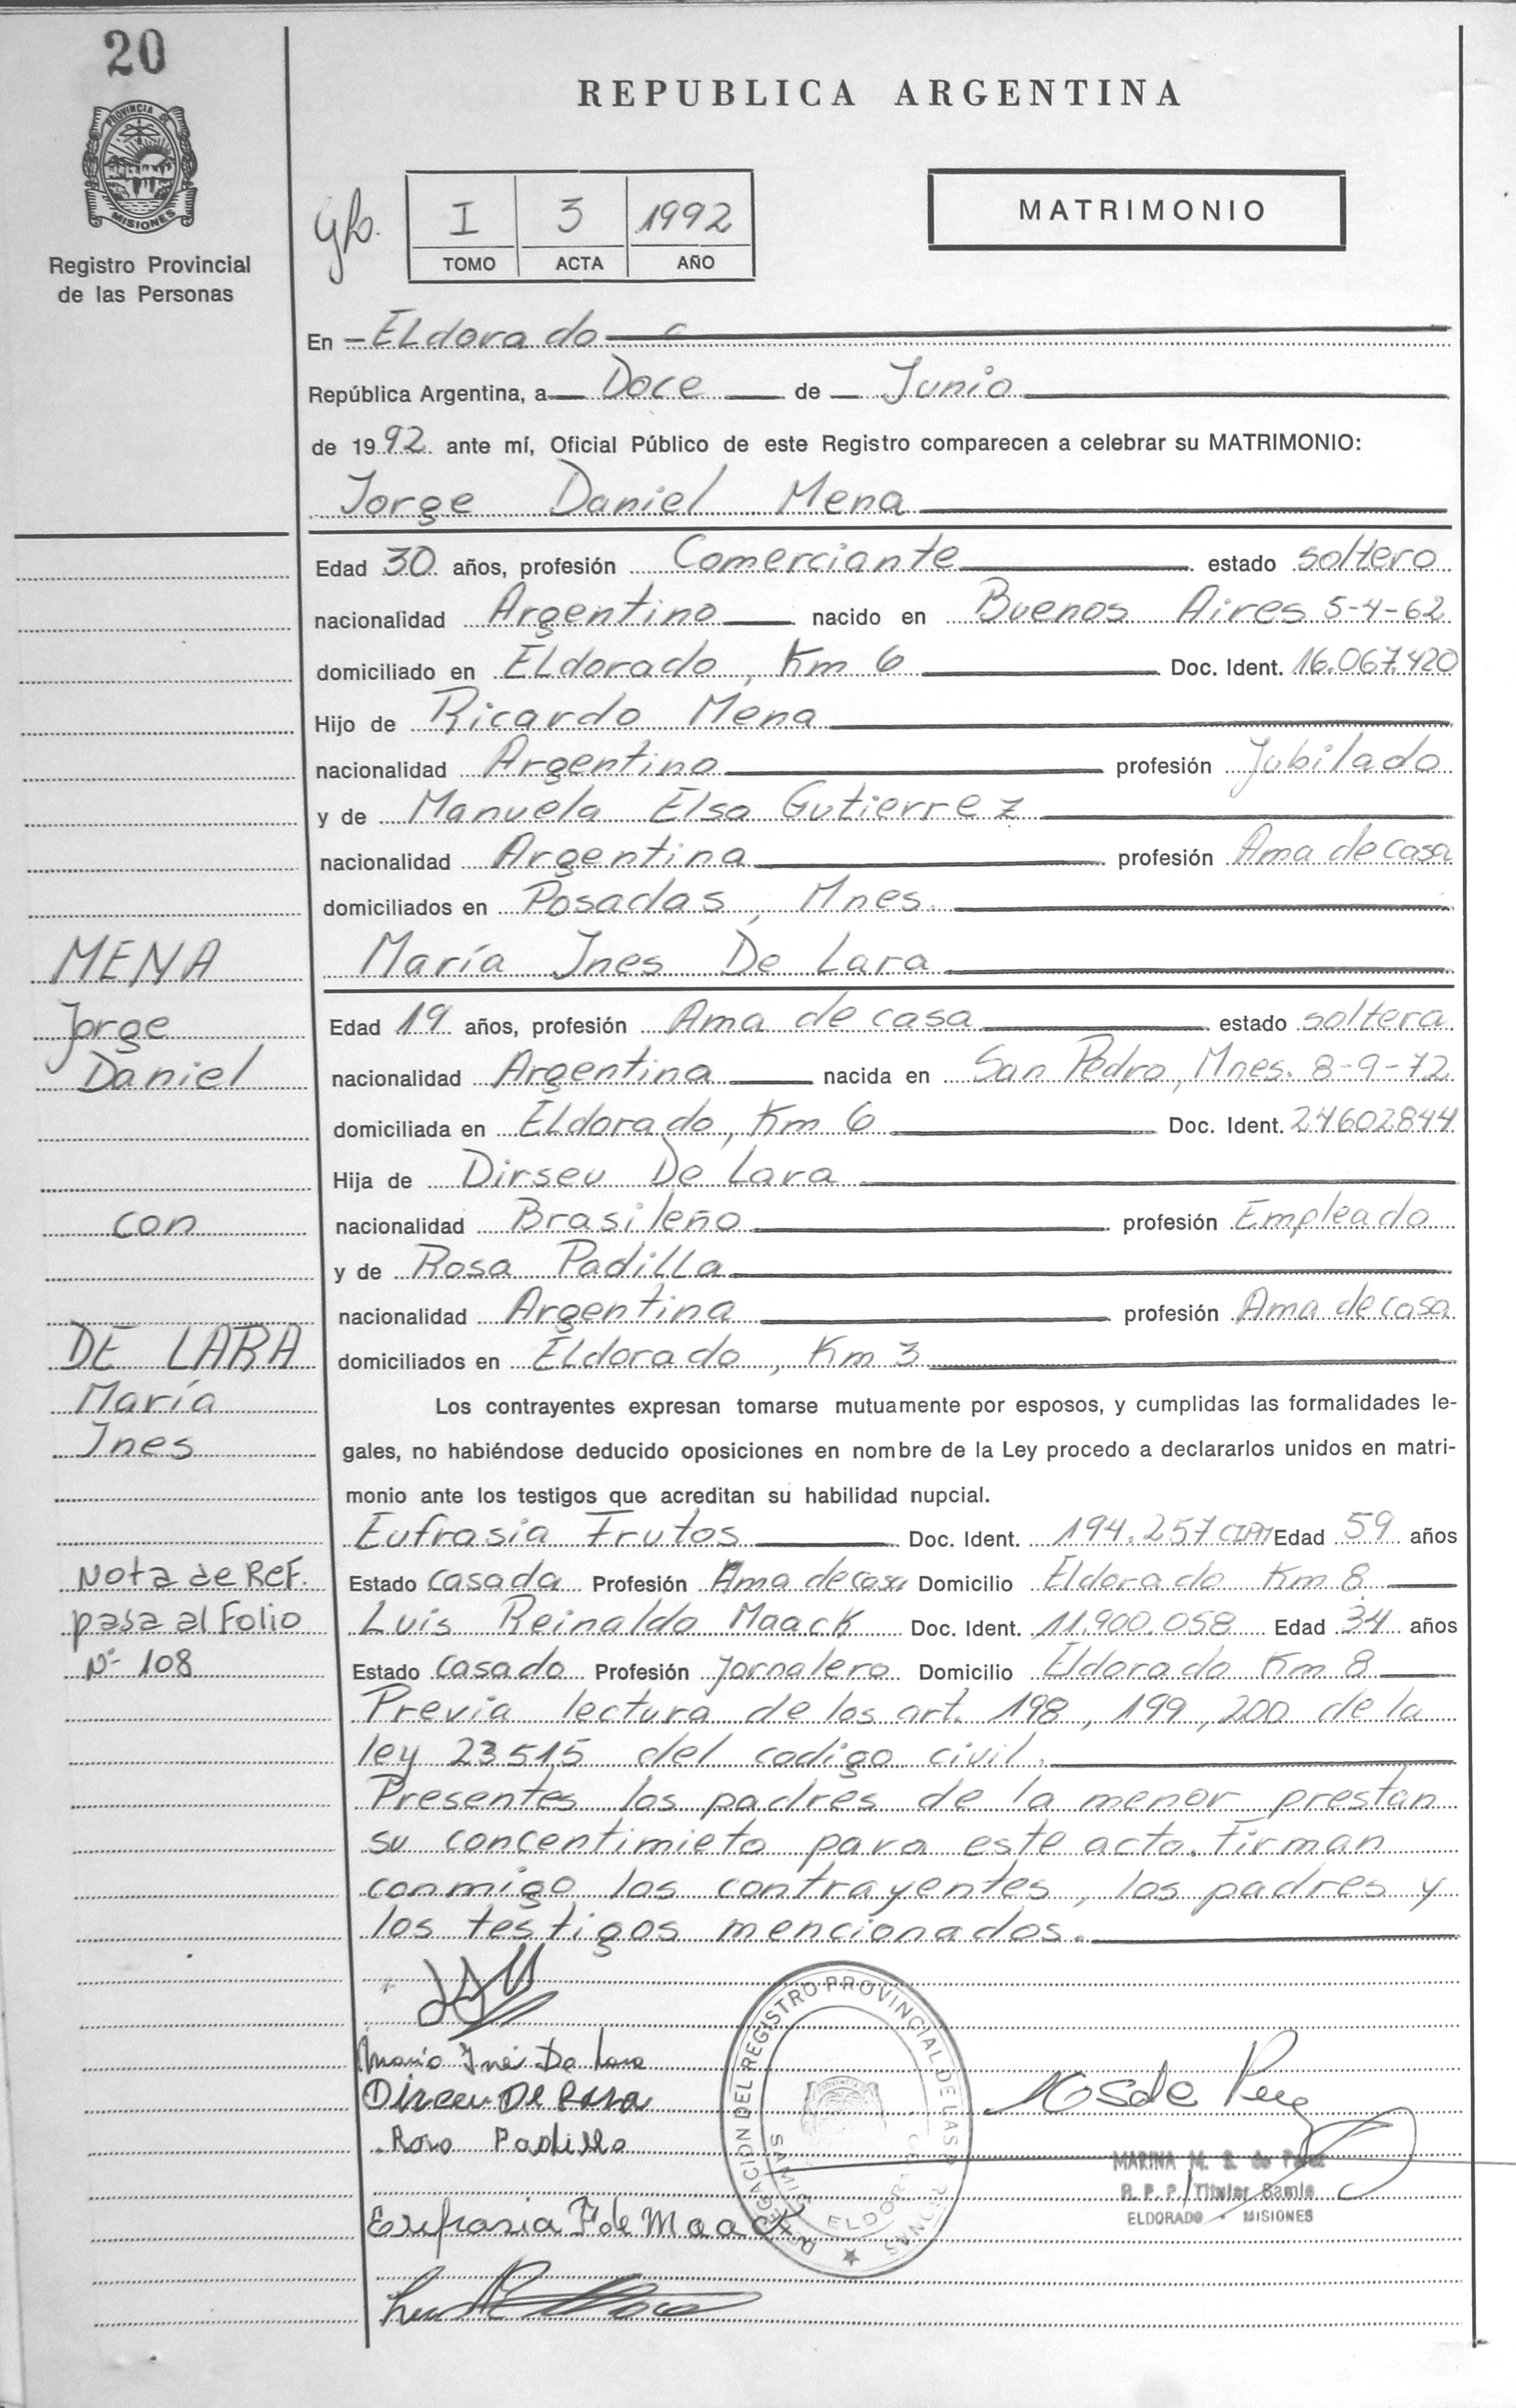 20
PROVINCIA DE
MISIONES
Registro Provincial
de las Personas
REPUBLICA ARGENTINA
I 3 1992
TOMO ACTA AÑO
MATRIMONIO
En Eldorado
República Argentina, a Doce de Junio
de 1992 ante mí, Oficial Público de este Registro comparecen a celebrar su MATRIMONIO:
Jorge Daniel Mena
Edad 30 años, profesión Comerciante estado soltero
nacionalidad Argentino nacido en Buenos Aires 5-4-62
domiciliado en Eldorado, Km 6 Doc. Ident. 16.067.420
Hijo de Ricardo Mena
nacionalidad Argentino profesión Jubilado
y de Manuela Elsa Gutierrez
nacionalidad Argentina profesión Ama de casa
domiciliados en Posadas, Mnes.
María Ines De Lara
Edad 19 años, profesión Ama de casa estado soltera
nacionalidad Argentina nacida en San Pedro, Mnes. 8-9-72
domiciliada en Eldorado, Km 6 Doc. Ident. 24602844
Hija de Dirseu De Lara
nacionalidad Brasileño profesión Empleado
y de Rosa Padilla
nacionalidad Argentina profesión Ama de casa
domiciliados en Eldorado, Km 3
Los contrayentes expresan tomarse mutuamente por esposos, y cumplidas las formalidades le-
gales, no habiéndose deducido oposiciones en nombre de la Ley procedo a declararlos unidos en matri-
monio ante los testigos que acreditan su habilidad nupcial.
Eufrasia Frutos Doc. Ident. 194.257 Edad 59 años
Estado casada Profesión Ama de casa Domicilio Eldorado Km 8
Luis Reinaldo Maack Doc. Ident. 11.900.058 Edad 34 años
Estado casado Profesión Jornalero Domicilio Eldorado Km 8
Previa lectura de los art. 198, 199, 200 de la
ley 23515 del codigo civil.
Presentes los padres de la menor prestan
su concentimieto para este acto. Firman
conmigo los contrayentes, los padres y
los testigos mencionados.
MENA
Jorge
Daniel
con
DE LARA
María
Ines
Nota de Ref.
pasa al Folio
Nº 108
María Inés De Lara
Dirceu De Lara
Rosa Padilla
Eufrasia F de Maack
DELEGACION DEL REGISTRO PROVINCIAL DE LAS PERSONAS
ELDORADO
MARINA M. S. de Perez
R. P. P. Titular
ELDORADO - MISIONES